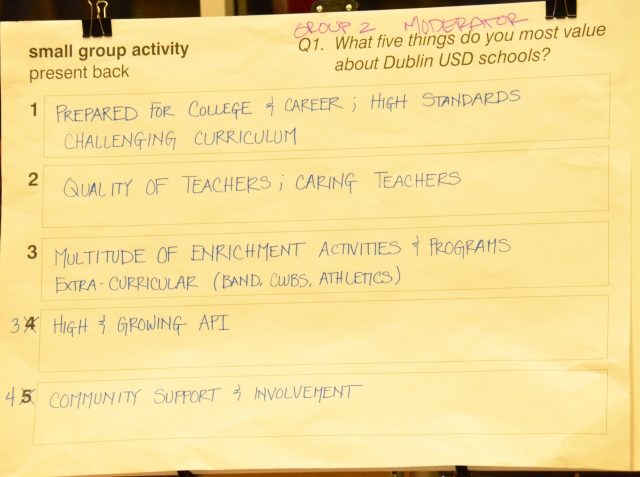 GROUP 2 MODERATOR
small group activity
present back
Q1. What five things do you most value
about Dublin USD schools?
1 PREPARED FOR COLLEGE & CAREER ; HIGH STANDARDS
CHALLENGING CURRICULUM
2 QUALITY OF TEACHERS ; CARING TEACHERS
3 MULTITUDE OF ENRICHMENT ACTIVITIES & PROGRAMS
EXTRA-CURRICULAR (BAND, CLUBS, ATHLETICS)
3 4 HIGH & GROWING API
4 5 COMMUNITY SUPPORT & INVOLVEMENT